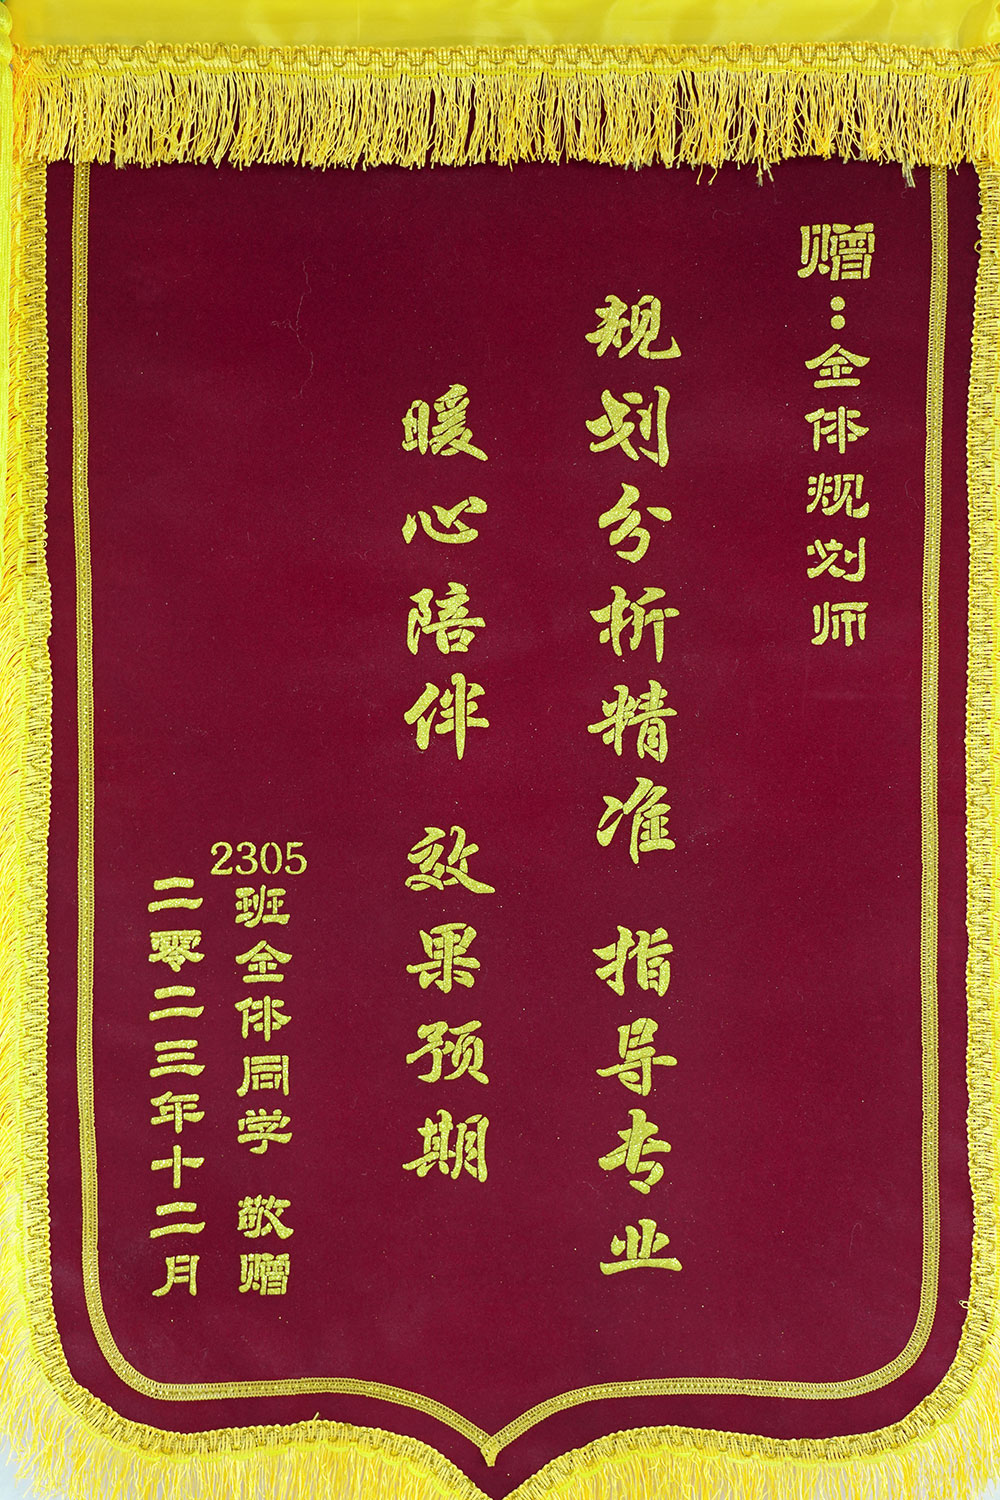 赠：全体规划师
规划分析精准 指导专业
暖心陪伴 效果预期
2305班全体同学 敬赠
二零二三年十二月